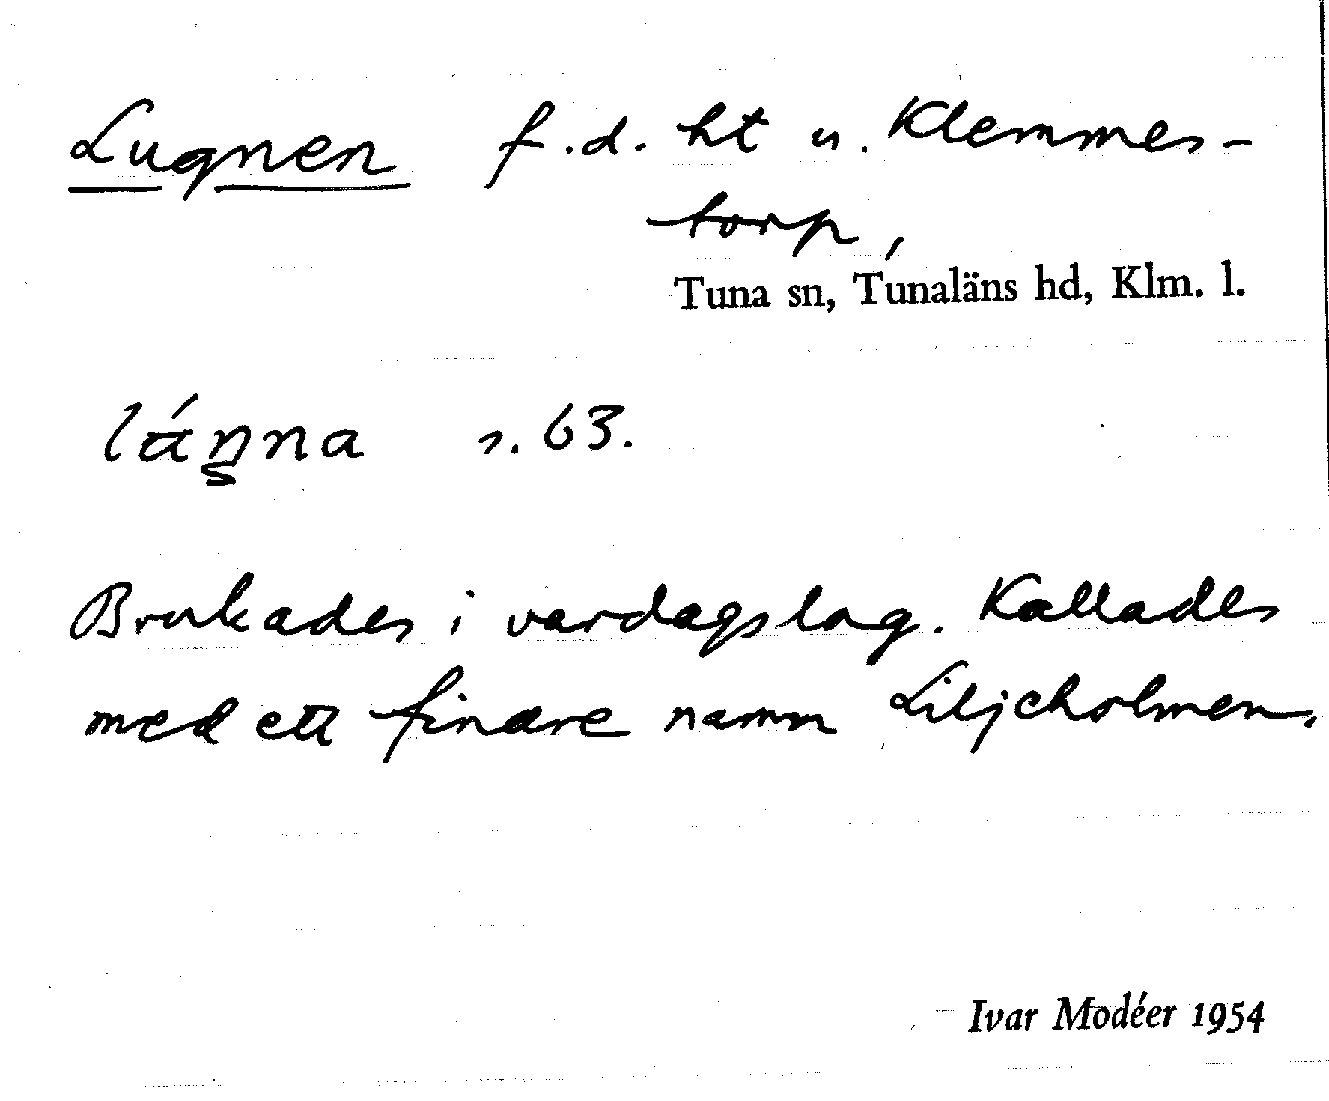 Lugnen f.d. ht u. Klemmes-
torp,
Tuna sn, Tunaläns hd, Klm. l.
s. 63.
Brukades i vardagslag. Kallades
med ett finare namn Liljeholmen.
Ivar Modéer 1954